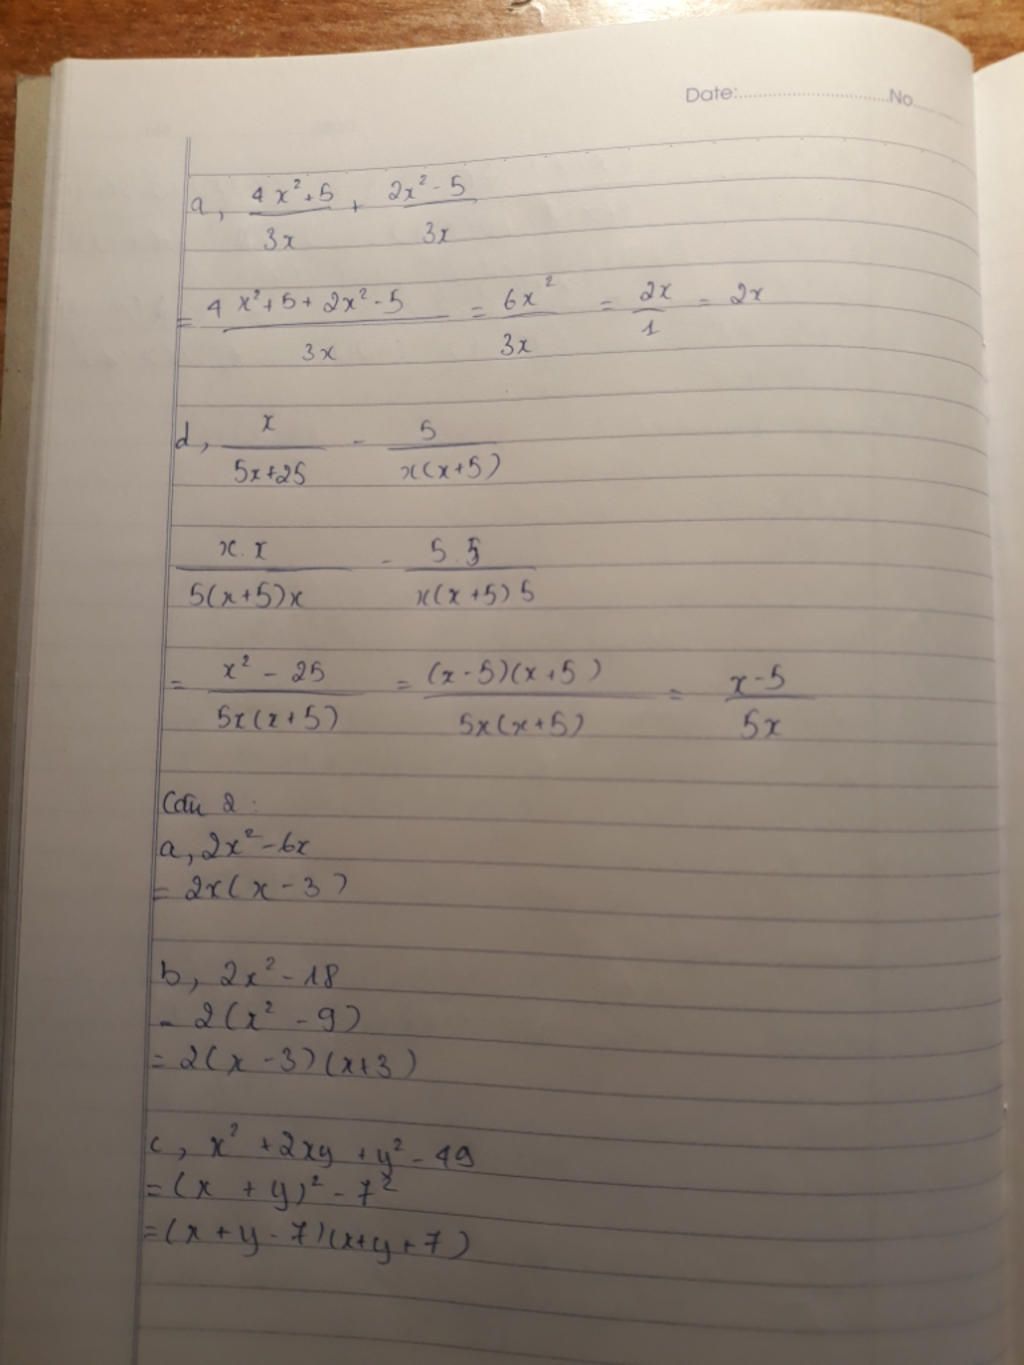 Date:..............................No.....
a, (4x²+5)/(3x) + (2x²-5)/(3x)
= (4x²+5+2x²-5)/(3x) = 6x²/(3x) = 2x/1 = 2x
d, x/(5x+25) - 5/(x(x+5))
(x.x)/(5(x+5)x) - (5.5)/(x(x+5)5)
= (x²-25)/(5x(x+5)) = ((x-5)(x+5))/(5x(x+5)) = (x-5)/(5x)
Câu 2:
a, 2x²-6x
= 2x(x-3)
b, 2x²-18
= 2(x²-9)
= 2(x-3)(x+3)
c, x²+2xy+y²-49
=(x+y)²-7²
=(x+y-7)(x+y+7)